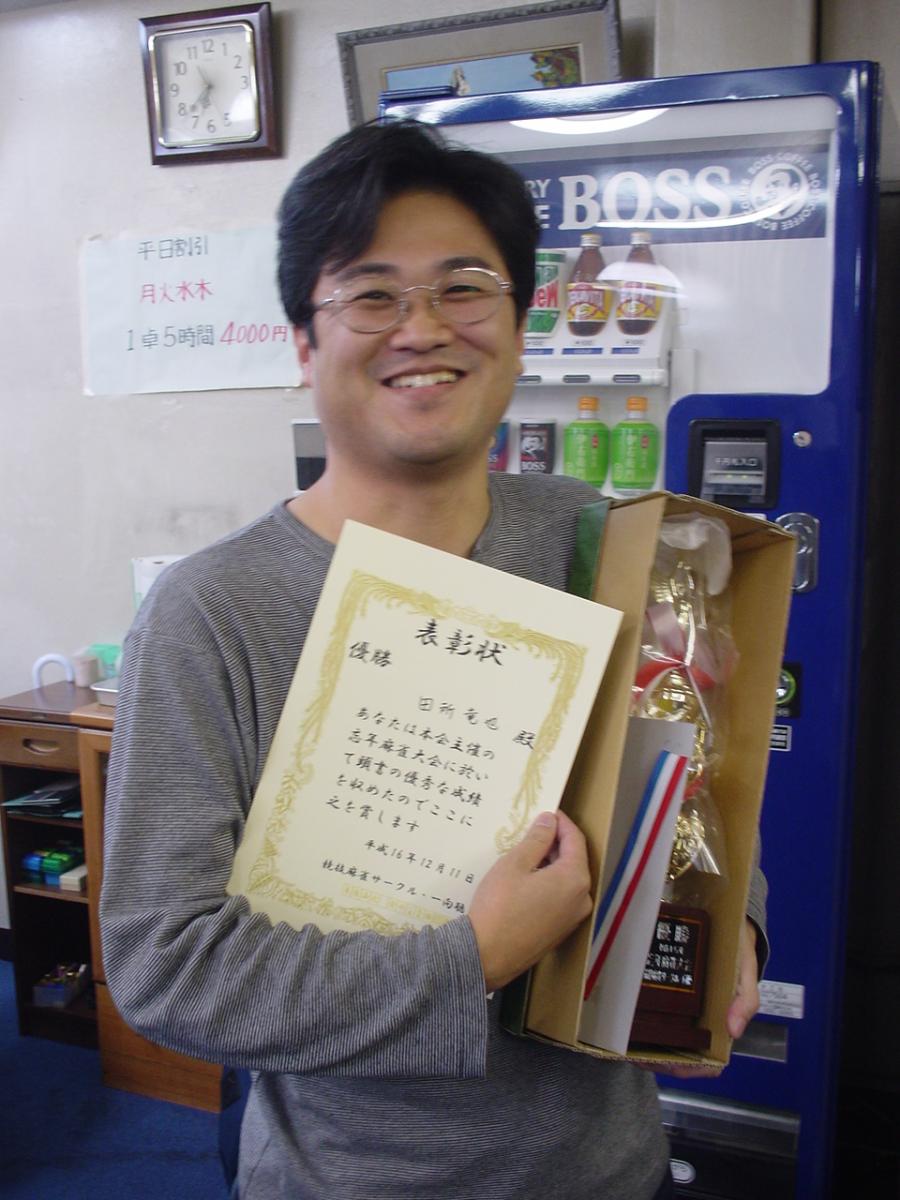 12
1
2
3
5
6
7
8
9
10
11
BOSS
BOSS COFFEE
平日割引
月火水木
1卓5時間 4000円
BOSS
表彰状
優勝
田所竜也 殿
あなたは本会主催の
忘年麻雀大会に於い
て頭書の優秀な成績
を収めたのでここに
之を賞します
平成16年12月11日
競技麻雀サークル・一向聴